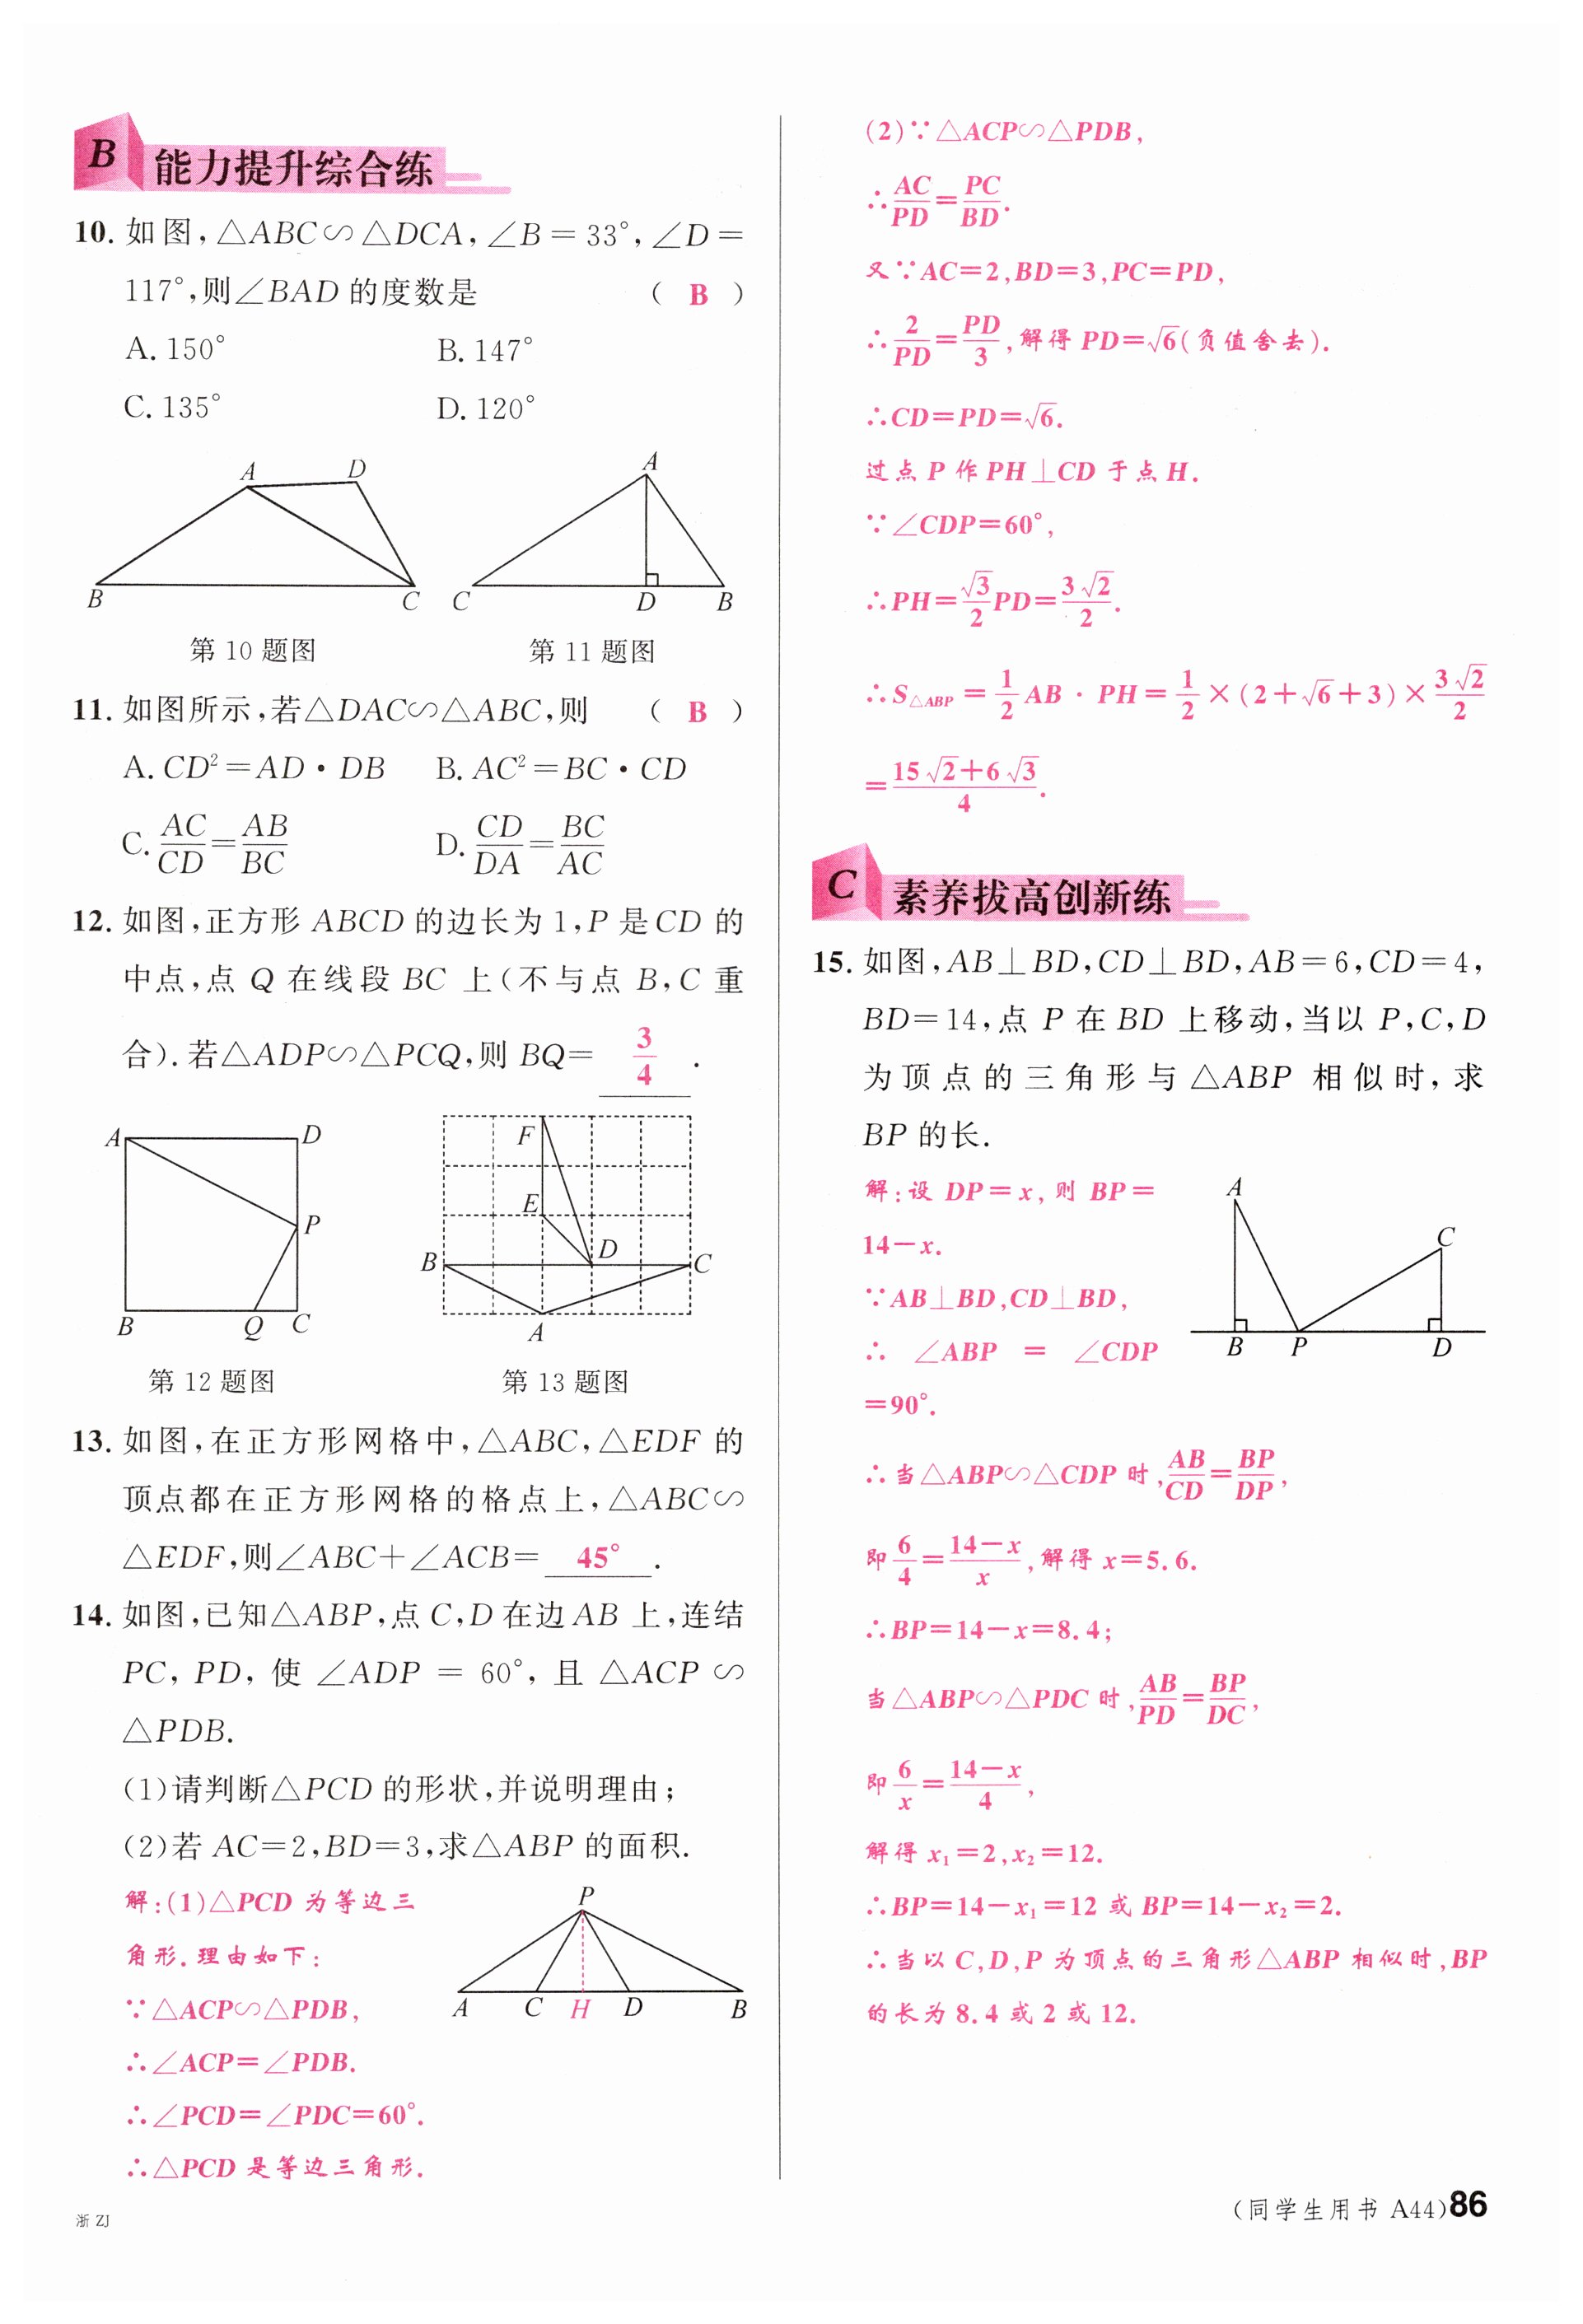 B 能力提升综合练
10. 如图,△ABC∽△DCA,∠B=33°,∠D=
117°,则∠BAD 的度数是 ( B )
A. 150° B. 147°
C. 135° D. 120°
A D B C
A C D B
第 10 题图 第 11 题图
11. 如图所示,若△DAC∽△ABC,则 ( B )
A. CD²=AD·DB B. AC²=BC·CD
C. AC/CD=AB/BC D. CD/DA=BC/AC
12. 如图,正方形 ABCD 的边长为 1,P 是 CD 的
中点,点 Q 在线段 BC 上(不与点 B,C 重
合).若△ADP∽△PCQ,则 BQ= 3/4 .
A D P B Q C
F E B D C A
第 12 题图 第 13 题图
13. 如图,在正方形网格中,△ABC,△EDF 的
顶点都在正方形网格的格点上,△ABC∽
△EDF,则∠ABC+∠ACB= 45° .
14. 如图,已知△ABP,点 C,D 在边 AB 上,连结
PC, PD, 使 ∠ADP = 60°, 且 △ACP ∽
△PDB.
(1)请判断△PCD 的形状,并说明理由;
(2)若 AC=2,BD=3,求△ABP 的面积.
解:(1)△PCD 为等边三
角形.理由如下:
∵△ACP∽△PDB,
∴∠ACP=∠PDB.
∴∠PCD=∠PDC=60°.
∴△PCD 是等边三角形.
P
A C H D B
浙 ZJ
(2)∵△ACP∽△PDB,
∴AC/PD=PC/BD.
又∵AC=2,BD=3,PC=PD,
∴2/PD=PD/3,解得 PD=√6(负值舍去).
∴CD=PD=√6.
过点 P 作 PH⊥CD 于点 H.
∵∠CDP=60°,
∴PH=√3/2 PD=3√2/2.
∴S△ABP=1/2 AB·PH=1/2×(2+√6+3)×3√2/2
=(15√2+6√3)/4.
C 素养拔高创新练
15. 如图,AB⊥BD,CD⊥BD,AB=6,CD=4,
BD=14,点 P 在 BD 上移动,当以 P,C,D
为顶点的三角形与△ABP 相似时,求
BP 的长.
解:设 DP=x,则 BP=
14-x.
∵AB⊥BD,CD⊥BD,
∴ ∠ABP = ∠CDP
=90°.
A C
B P D
∴当△ABP∽△CDP 时,AB/CD=BP/DP,
即 6/4=(14-x)/x,解得 x=5.6.
∴BP=14-x=8.4;
当△ABP∽△PDC 时,AB/PD=BP/DC,
即 6/x=(14-x)/4,
解得 x₁=2,x₂=12.
∴BP=14-x₁=12 或 BP=14-x₂=2.
∴当以 C,D,P 为顶点的三角形△ABP 相似时,BP
的长为 8.4 或 2 或 12.
(同学生用书 A44)86